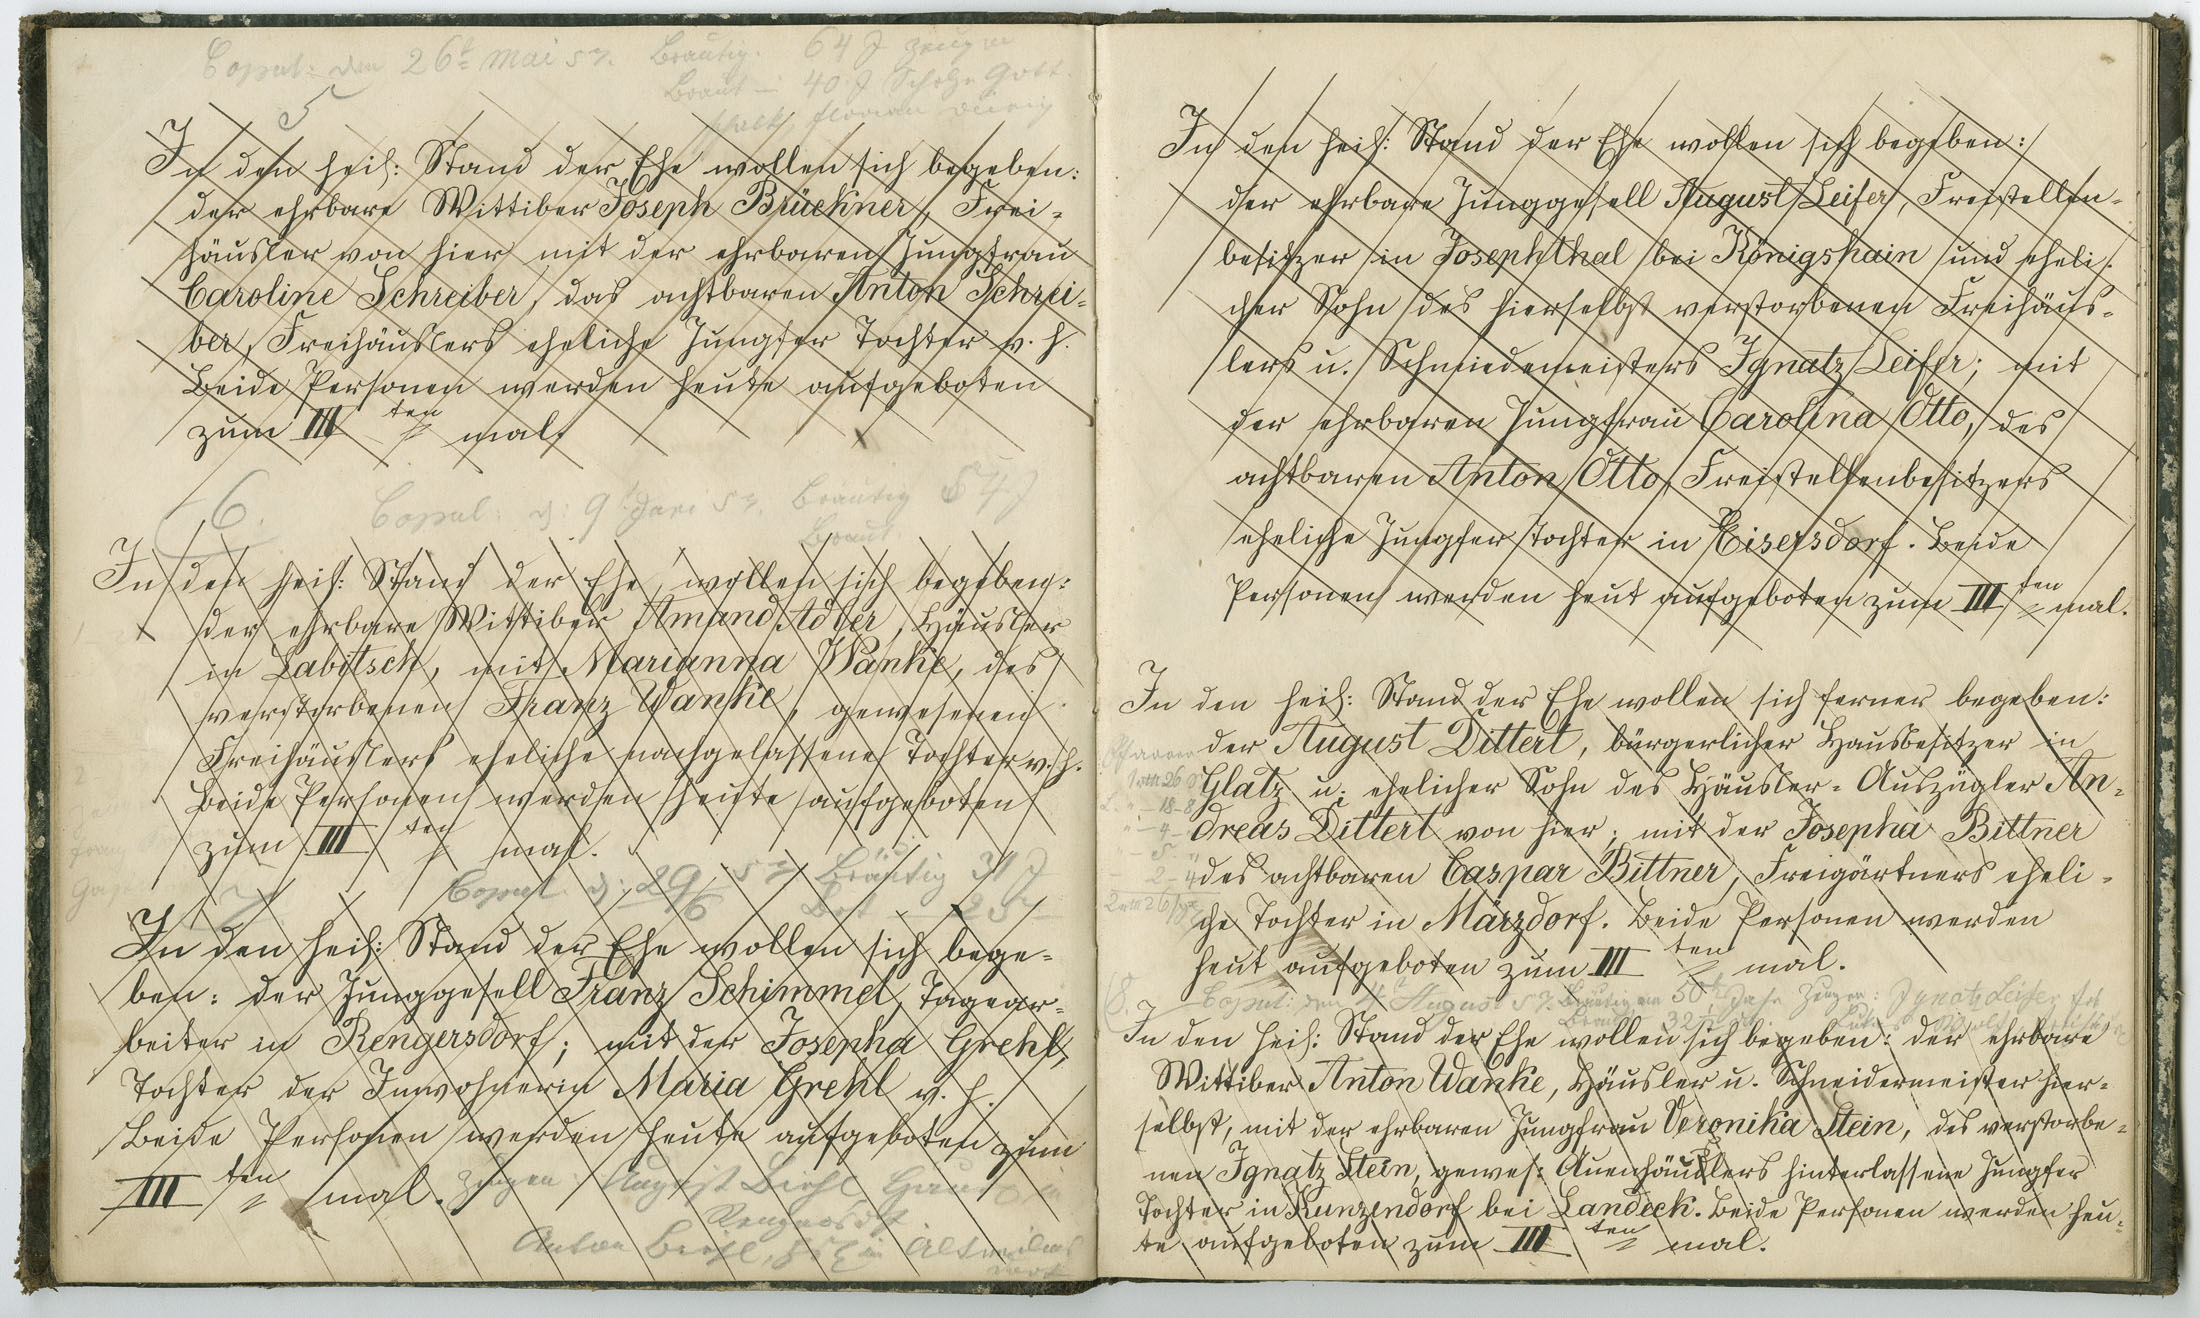 Copul: den 26t Mai 57. Bräutig. 64 J Zeugen
Braut — 40 J Scholze Gott
Florian
5
In den heil: Stand der Ehe wollen sich begeben:
der ehrbare Wittiber Joseph Brückner, Frei-
häusler von hier mit der ehrbaren Jungfrau
Caroline Schreiber, das achtbaren Anton Schrei-
ber, Freihäuslers eheliche Jungfer Tochter v. h.
Beide Personen werden heute aufgeboten
zum III ten mal.
6. Copul: d: 9t Juni 57. Bräutig 54 J
Braut.
In den heil: Stand der Ehe wollen sich begeben:
der ehrbare Wittiber Amand Adler, Häusler
in Labitsch, mit Marianna Wanke, des
verstorbenen Franz Wanke, gewesenen
Freihäuslers eheliche nachgelassene Tochter v. h.
Beide Personen werden heute aufgeboten
zum III ten mal.
7. Copul. d: 29/6 57 Bräutig 31 J
In den heil: Stand der Ehe wollen sich bege-
ben: der Junggesell Franz Schimmel, Tagear-
beiter in Rengersdorf; mit der Josepha Grehl,
Tochter der Inwohnerin Maria Grehl v. h.
Beide Personen werden heute aufgeboten zum
III ten mal. Zeugen: August
Rengersdf
Anton
In den heil: Stand der Ehe wollen sich begeben:
der ehrbare Junggesell August Leifer, Freistellen-
besitzer in Josephthal bei Königshain und eheli-
cher Sohn des hierselbst verstorbenen Freihäus-
lers u. Schmiedemeisters Ignatz Leifer; mit
der ehrbaren Jungfrau Carolina Otto, des
achtbaren Anton Otto, Freistellenbesitzers
eheliche Jungfer Tochter in Eisersdorf. Beide
Personen werden heut aufgeboten zum III ten mal.
In den heil: Stand der Ehe wollen sich ferner begeben:
der August Dittert, bürgerlicher Hausbesitzer in
Glatz u. ehelicher Sohn des Häusler-Auszügler An-
dreas Dittert von hier; mit der Josepha Bittner
des achtbaren Caspar Bittner, Freigärtners eheli-
che Tochter in Märzdorf. Beide Personen werden
heut aufgeboten zum III ten mal.
8. Copul: den 4t August 57. Bräutigam 50 Jahr Zeugen: Ignatz Leifer
Braut 32
In den heil: Stand der Ehe wollen sich begeben: der ehrbare
Wittiber Anton Wanke, Häusler u. Schneidermeister hier-
selbst, mit der ehrbaren Jungfrau Veronika Stein, des verstorbe-
nen Ignatz Stein, gewes: Auenhäuslers hinterlassene Jungfer
Tochter in Kunzendorf bei Landeck. Beide Personen werden heu-
te aufgeboten zum III ten mal.